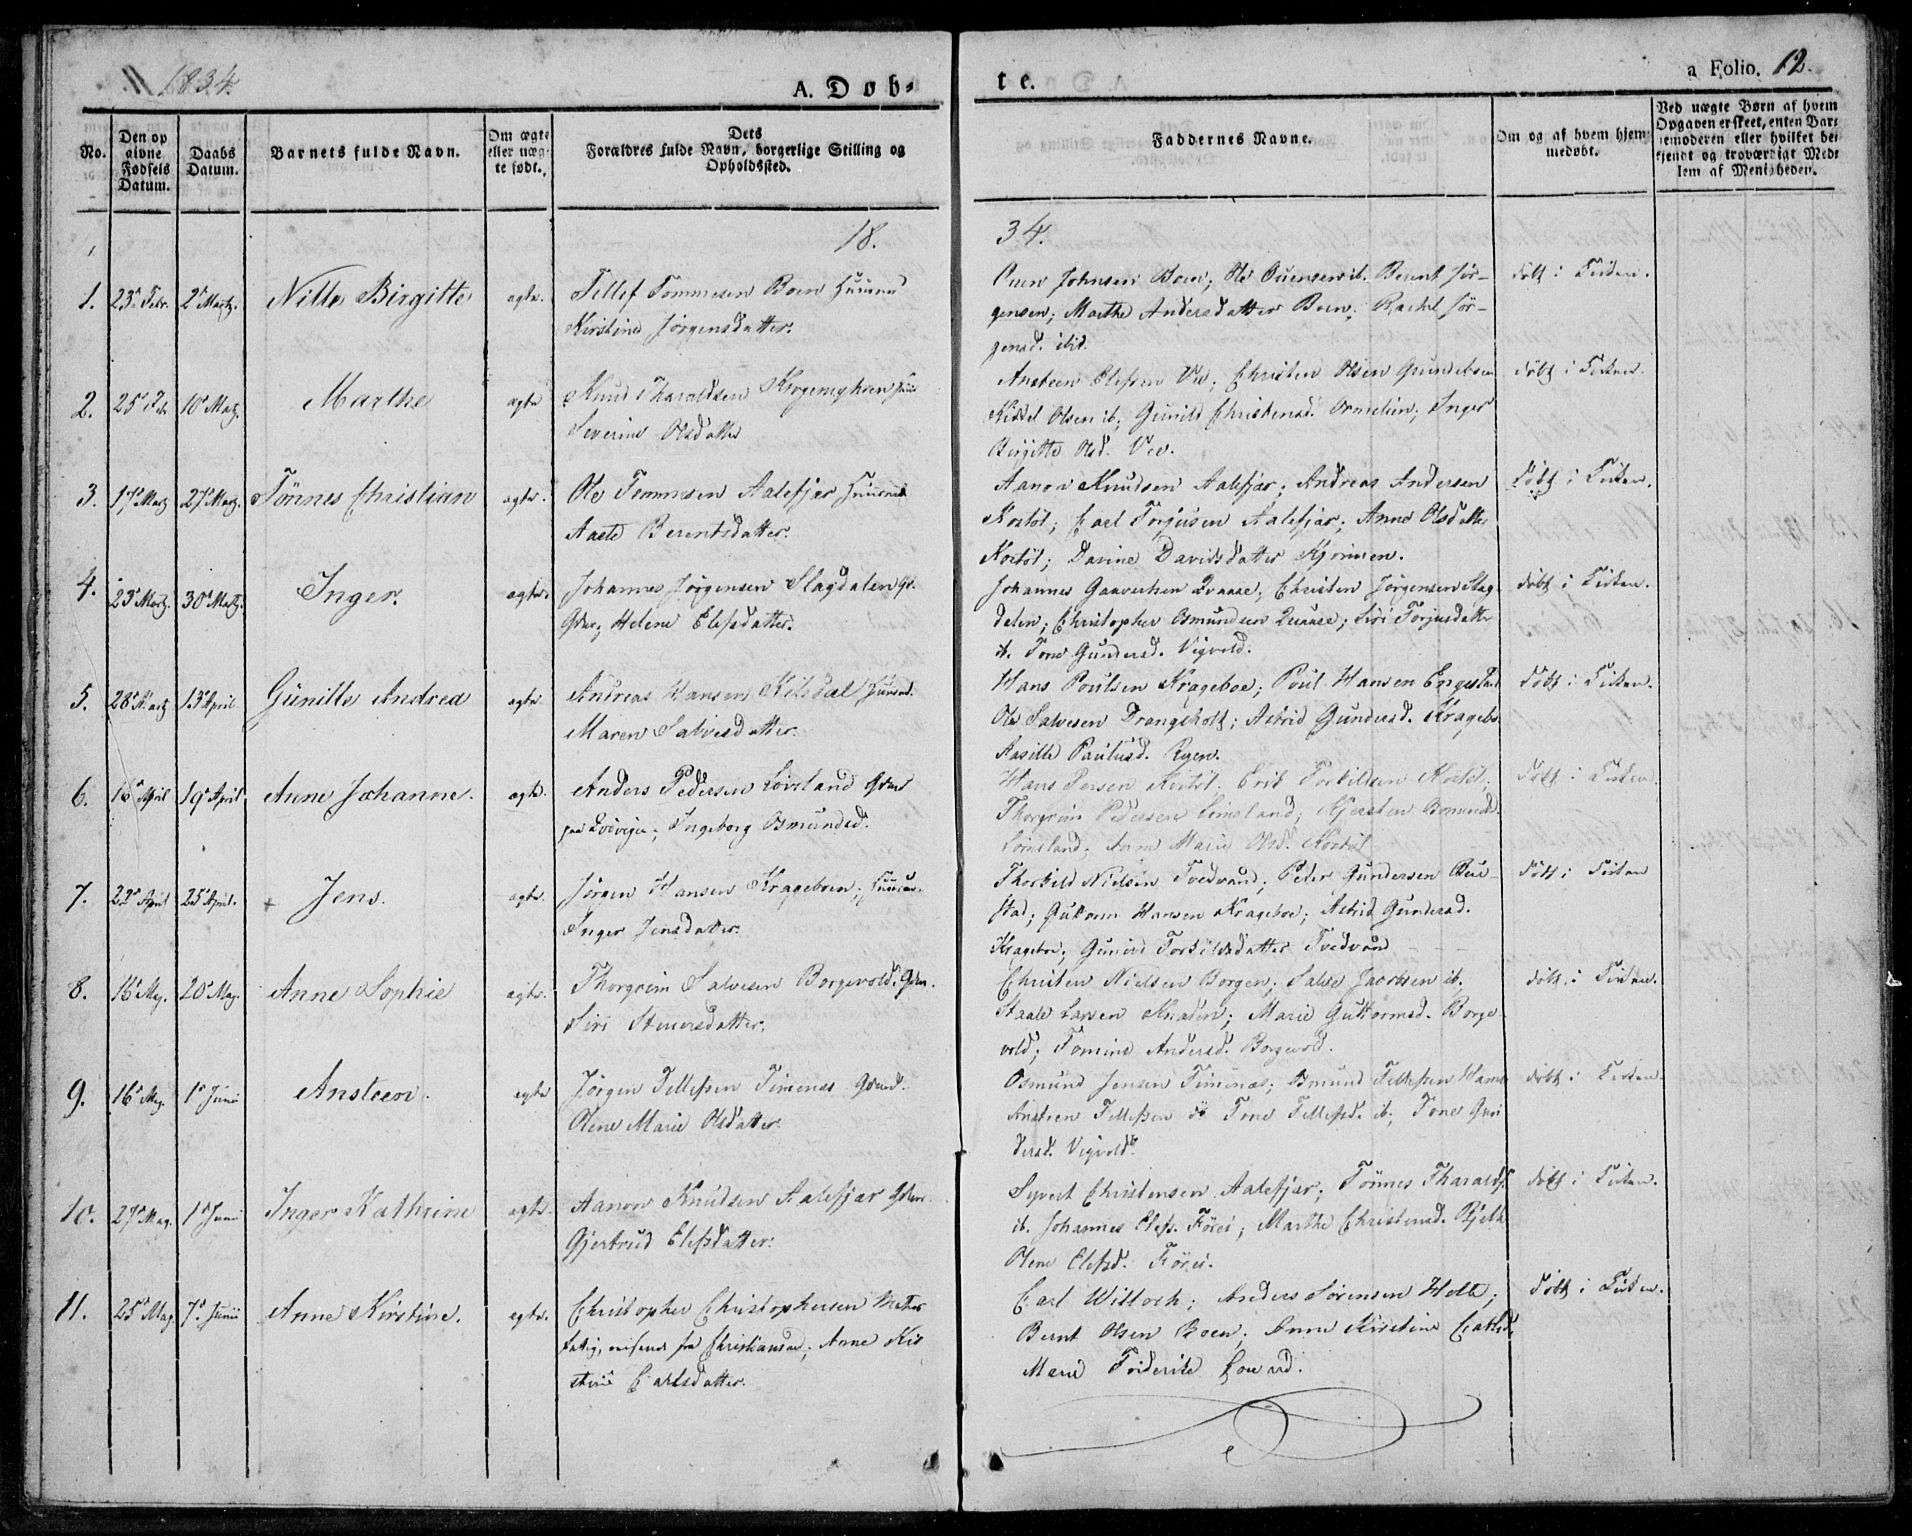 1834.
A. Døb-
te.
a Folio. 12.
No.
Den op
givne
Fødsels
Datum.
Daabs
Datum.
Barnets fulde Navn.
Om ægte
eller uæg-
te født.
Dets
Forældres fulde Navn, borgerlige Stilling og
Opholdssted.
Faddernes Navne.
Om og af hvem hjem-
medøbt.
Ved uægte Børn af hvem
Opgaven er skeet, enten Bar-
nemoderen eller hvilket be-
kjendt og troværdigt Med-
lem af Menigheden.
18.
34.
1. 23. Febr. 2 Martz. Nille Birgitte ægte. Tellef Tommesen Boen Huusmd
Kirstine Jørgensdatter.
Ouen Johnsen Boen; Ole Ouensen ib. Bernt Jør-
gensen; Marthe Andersdatter Boen; Rachel Jør-
gensd. ibid.
døbt i Kirken.
2. 25 Feb 10 Martz. Marthe ægte Knud Tharaldsen
Severine Olsdatter
Ansteen Elefsen Ve; Christen Olsen
Kittel Olsen ib; Gunild Christensd. Inger
Birgitte Olsd. Vee.
døbt i Kirken.
3. 17 Martz 27 Martz. Tønnes Christian ægte. Ole Tommesen Aalefjær Huusmd
Aaste Berentsdatter.
Aanon Knudsen Aalefjær; Andreas Andersen
Kostøl; Carl Torjusen Aalefjær; Anne Olsdatter
Kostøl; Davine Davidsdatter
Døbt i Kirken.
4. 23 Martz. 30 Martz. Inger. ægte. Johannes Jørgensen Slagdalen
Helene Elefsdatter.
Johannes Christen Jørgensen Slag-
dalen; Christopher Osmundsen Siri Torjusdatter
ib. Tone Gundersd. Vigvold.
døbt i Kirken.
5. 28 Martz 13 April Gunille Andrea ægte. Andreas Hansen Kilsdal Huusmd.
Maren Salvesdatter.
Hans Poulsen Krageboe; Poul Hansen Engestad
Ole Salvesen Drangsholt; Astrid Gundersd. Kragebo
Aasille Paulusd. Ryen.
døbt i Kirken.
6. 16 April 19 April Anne Johanne. ægte. Anders Pedersen Lømsland
Ingeborg Osmundsd.
Hans Persen Kostøl. Erik Torkildsen Kostøl;
Thorgrim Pedersen Lømsland; Kjersten Osmundsd.
Lømsland; Anne Marie Olsd. Kostøl
døbt i Kirken
7. 22 April 25 April. Jens. ægte. Jørgen Hansen Krageboen;
Inger Jensdatter.
Thorkild Nielsen Tvedvand; Peder Gundersen
stad; Guttorm Hansen Krageboe; Astrid Gundersd.
Krageboe; Gunild Torkildsdatter Tvedvand
døbt i Kirken
8. 15 May. 20 May. Anne Sophie ægte. Thorgrim Salvesen Borgevold.
Siri Stenersdatter.
Christen Nielsen Borgen; Salve Jacobsen ib.
Staale Larsen Knaden; Marie Guttormsd. Borge-
vold; Tomine Andersd. Borgevold.
døbt. i Kirken.
9. 16 May. 1 Junii Ansteen. ægte Jørgen Tellefsen Timenæs
Olene Marie Olsdatter.
Osmund Jensen Timenæs; Osmund Tellefsen Hamr
Ansteen Tellefsen Tone Tellefsd. ib; Tone Gun
dersd. Vigvold.
døbt i Kirken
10. 27 May. 1 Junii Inger Kathrine ægte. Aanon Knudsen Aalefjær
Gjertrud Elefsdatter.
Syvert Christensen Aalefjær; Tønnes Tharalds.
ib. Johannes Elefs. Føreï; Marthe Christensd.
Olene Elefsd. Føreï.
døbt i Kirken.
11. 25 May 7 Junii Anne Kirstine. ægte. Christopher Christophersen
fra Christiansand; Anne Kir
stine Carlsdatter.
Carl Willoch; Anders Sørensen Holte;
Bernt Olsen Boen; Anne Kirstine Carlsd.
Marie Friderike
døbt i Kirken.